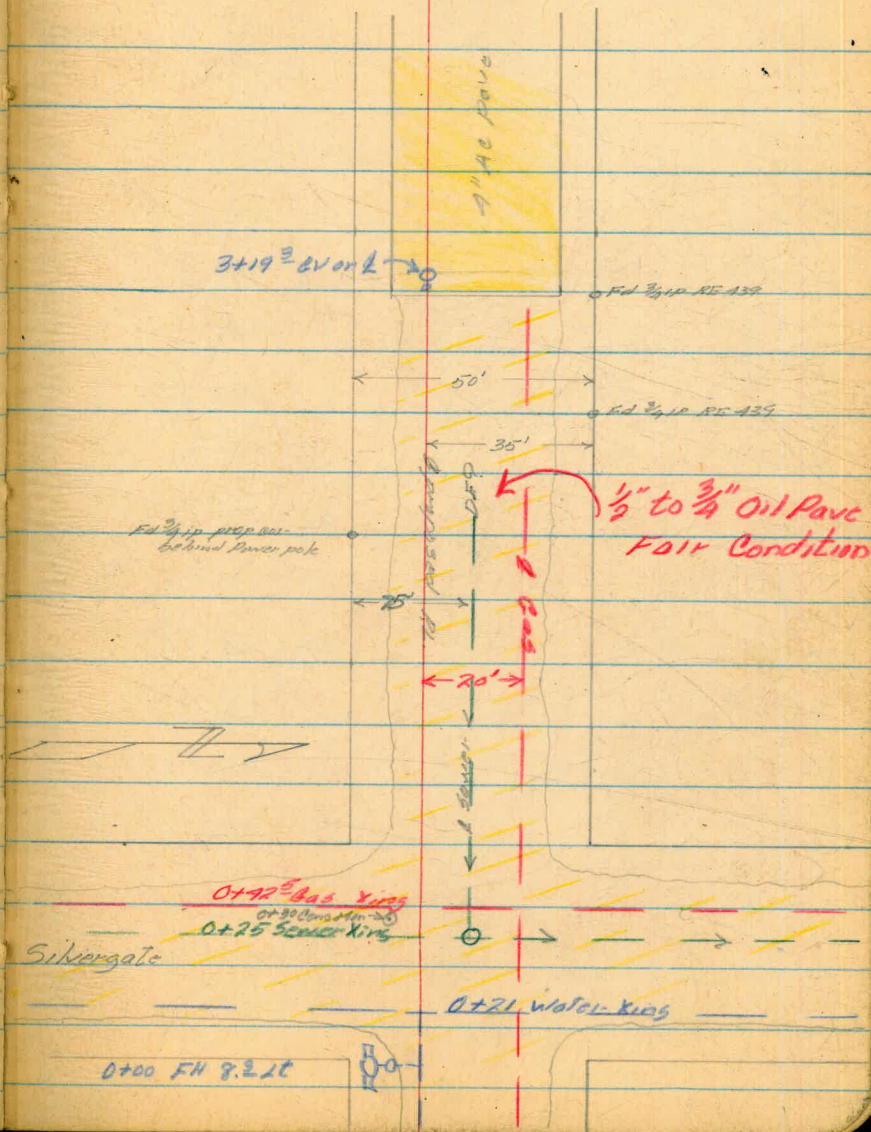 4" AC Pave
3+19³ GV on ℄
Fd 3/4 ip RE 439
50'
Fd 3/4 ip RE 439
35'
1/2" to 3/4" Oil Pave
Fair Condition
Fd 3/4 ip prop
behind Power pole
℄ Gas
25'
20'
℄ Sewer
0+42⁵ Gas Xing
0+30
0+25 Sewer Xing
Silvergate
0+21 Water Xing
0+00 FH 8.2 Lt